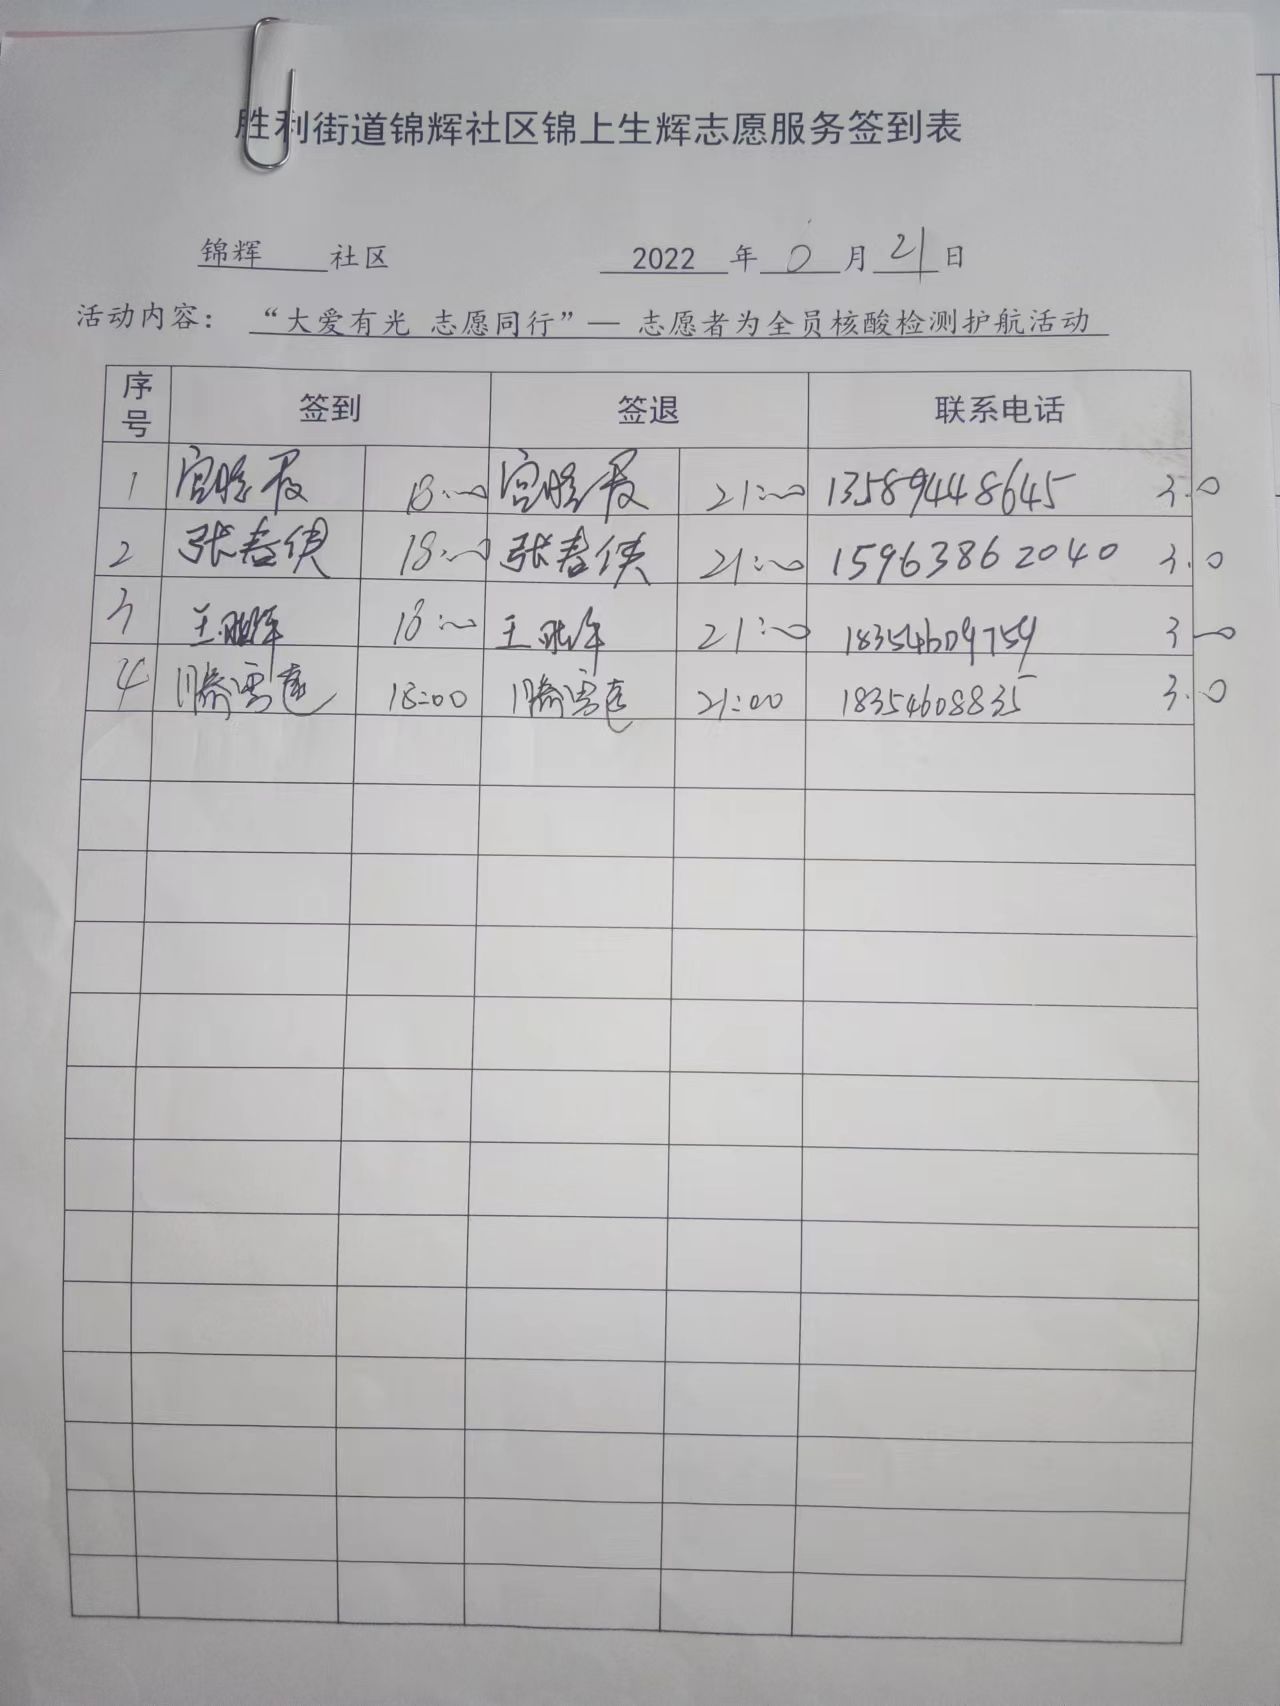 胜利街道锦辉社区锦上生辉志愿服务签到表
锦辉 社区 2022 年 月 21 日
活动内容: “大爱有光 志愿同行”— 志愿者为全员核酸检测护航活动
序号 签到 签退 联系电话
1 宫 18:00 宫 21:00 13589448645 3.0
2 张春侠 18:00 张春侠 21:00 15963862040 3.0
3 王 18:00 王 21:00 18354609759 3.0
4 滕雪莲 18:00 滕雪莲 21:00 18354608835 3.0